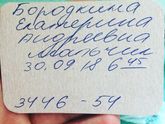 Бородкина
Екатерина
Андреевна
мальчик
30.09.18 6 45
3446 - 54